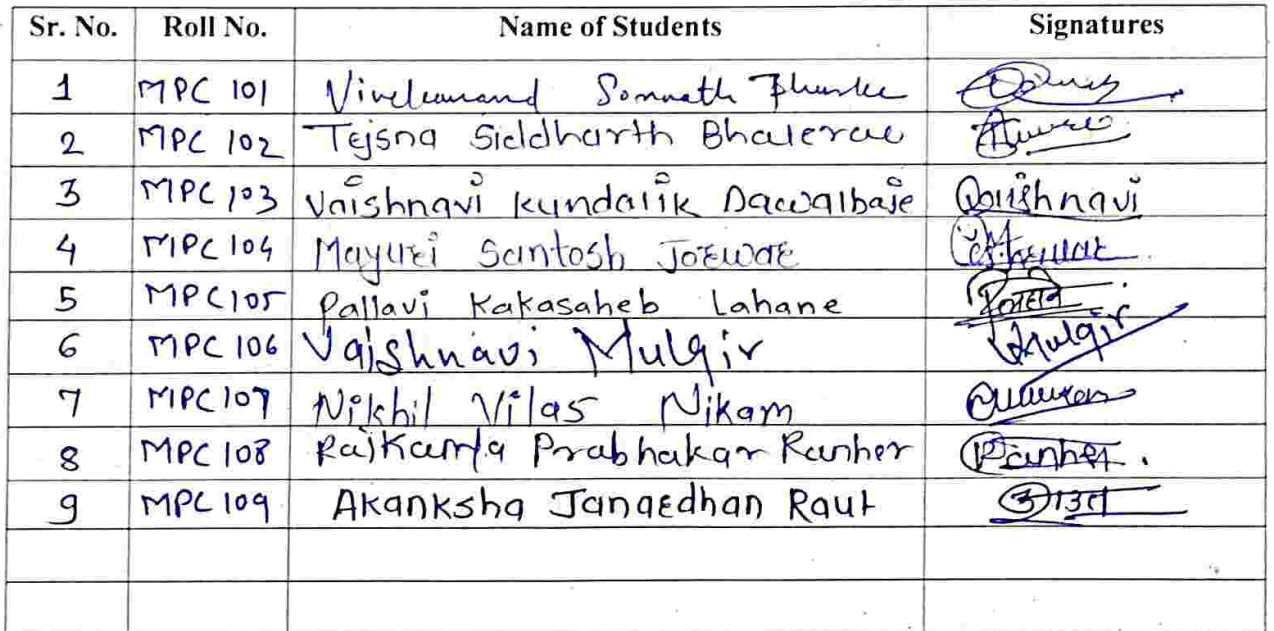 Sr. No. Roll No. Name of Students Signatures
1 MPC 101 Vivekanand Somnath
2 MPC 102 Tejsna Siddharth Bhalerao
3 MPC 103 Vaishnavi Kundalik Dawalbaje Vaishnavi
4 MPC 104 Mayuri Santosh Jorwar
5 MPC 105 Pallavi Kakasaheb Lahane
6 MPC 106 Vaishnavi Mulgir Mulgir
7 MPC 107 Nikhil Vilas Nikam
8 MPC 108 Prabhakar Ranher Ranher.
9 MPC 109 Akanksha Janardhan Raut